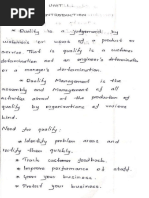 UNIT
INTRODUCTION
* Quality is a judgement by
customers or users of a product or
service. That is quality is a customer
determination not an engineer's determina-
tion or a manager's determination.
* Quality Management is the
assembly and management of all
activities aimed at the production of
quality by organisations of various
kind.
Need for quality:
* Identify problem areas and
rectify them quickly.
* Track customer feedback.
* Improve performance of staff.
* Grow your business.
* Protect your business.